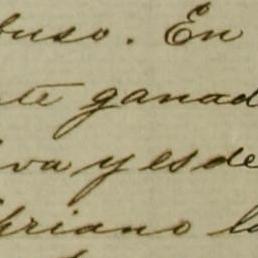 buso. En
te ganad
va y es de
briano la